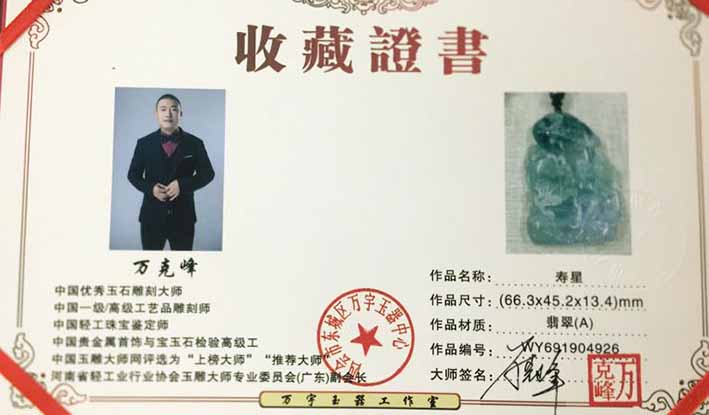 收藏證書
万克峰
中国优秀玉石雕刻大师
中国一级/高级工艺品雕刻师
中国轻工珠宝鉴定师
中国贵金属首饰与宝玉石检验高级工
中国玉雕大师网评选为“上榜大师”“推荐大师”
河南省轻工业行业协会玉雕大师专业委员会(广东)副会长
四会市东城区万宇玉器中心
作品名称: 寿星
作品尺寸: (66.3x45.2x13.4)mm
作品材质: 翡翠(A)
作品编号: WY691904926
大师签名:
万克峰
万宇玉器工作室